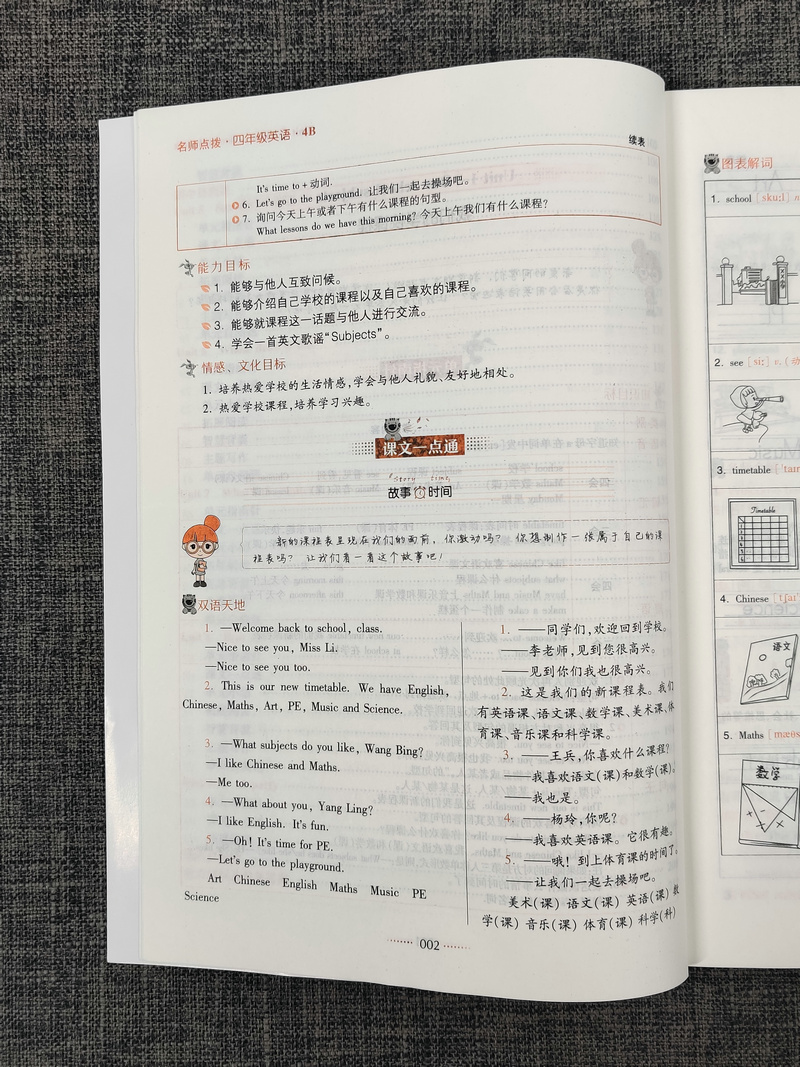 名师点拨·四年级英语·4B
续表
It's time to + 动词.
6. Let's go to the playground. 让我们一起去操场吧。
7. 询问今天上午或者下午有什么课程的句型。
What lessons do we have this morning? 今天上午我们有什么课程?
能力目标
1. 能够与他人互致问候。
2. 能够介绍自己学校的课程以及自己喜欢的课程。
3. 能够就课程这一话题与他人进行交流。
4. 学会一首英文歌谣“Subjects”。
情感、文化目标
1. 培养热爱学校的生活情感,学会与他人礼貌、友好地相处。
2. 热爱学校课程,培养学习兴趣。
课文一点通
Story time
故事时间
新的课程表呈现在我们的面前,你激动吗? 你想制作一张属于自己的课
程表吗? 让我们看一看这个故事吧!
双语天地
1. —Welcome back to school, class.
—Nice to see you, Miss Li.
—Nice to see you too.
2. This is our new timetable. We have English,
Chinese, Maths, Art, PE, Music and Science.
3. —What subjects do you like, Wang Bing?
—I like Chinese and Maths.
—Me too.
4. —What about you, Yang Ling?
—I like English. It's fun.
5. —Oh! It's time for PE.
—Let's go to the playground.
Art Chinese English Maths Music PE
Science
1. ——同学们,欢迎回到学校。
——李老师,见到您很高兴。
——见到你们我也很高兴。
2. 这是我们的新课程表。我们
有英语课、语文课、数学课、美术课、体
育课、音乐课和科学课。
3. ——王兵,你喜欢什么课程?
——我喜欢语文(课)和数学(课)。
——我也是。
4. ——杨玲,你呢?
——我喜欢英语课。它很有趣。
5. ——哦! 到上体育课的时间了。
——让我们一起去操场吧。
美术(课) 语文(课) 英语(课) 数
学(课) 音乐(课) 体育(课) 科学(科)
002
图表解词
1. school [skuːl] n
2. see [siː] v. (动
3. timetable [ˈtaɪm
Timetable
4. Chinese [tʃaɪˈ
语文
5. Maths [mæθs
数学